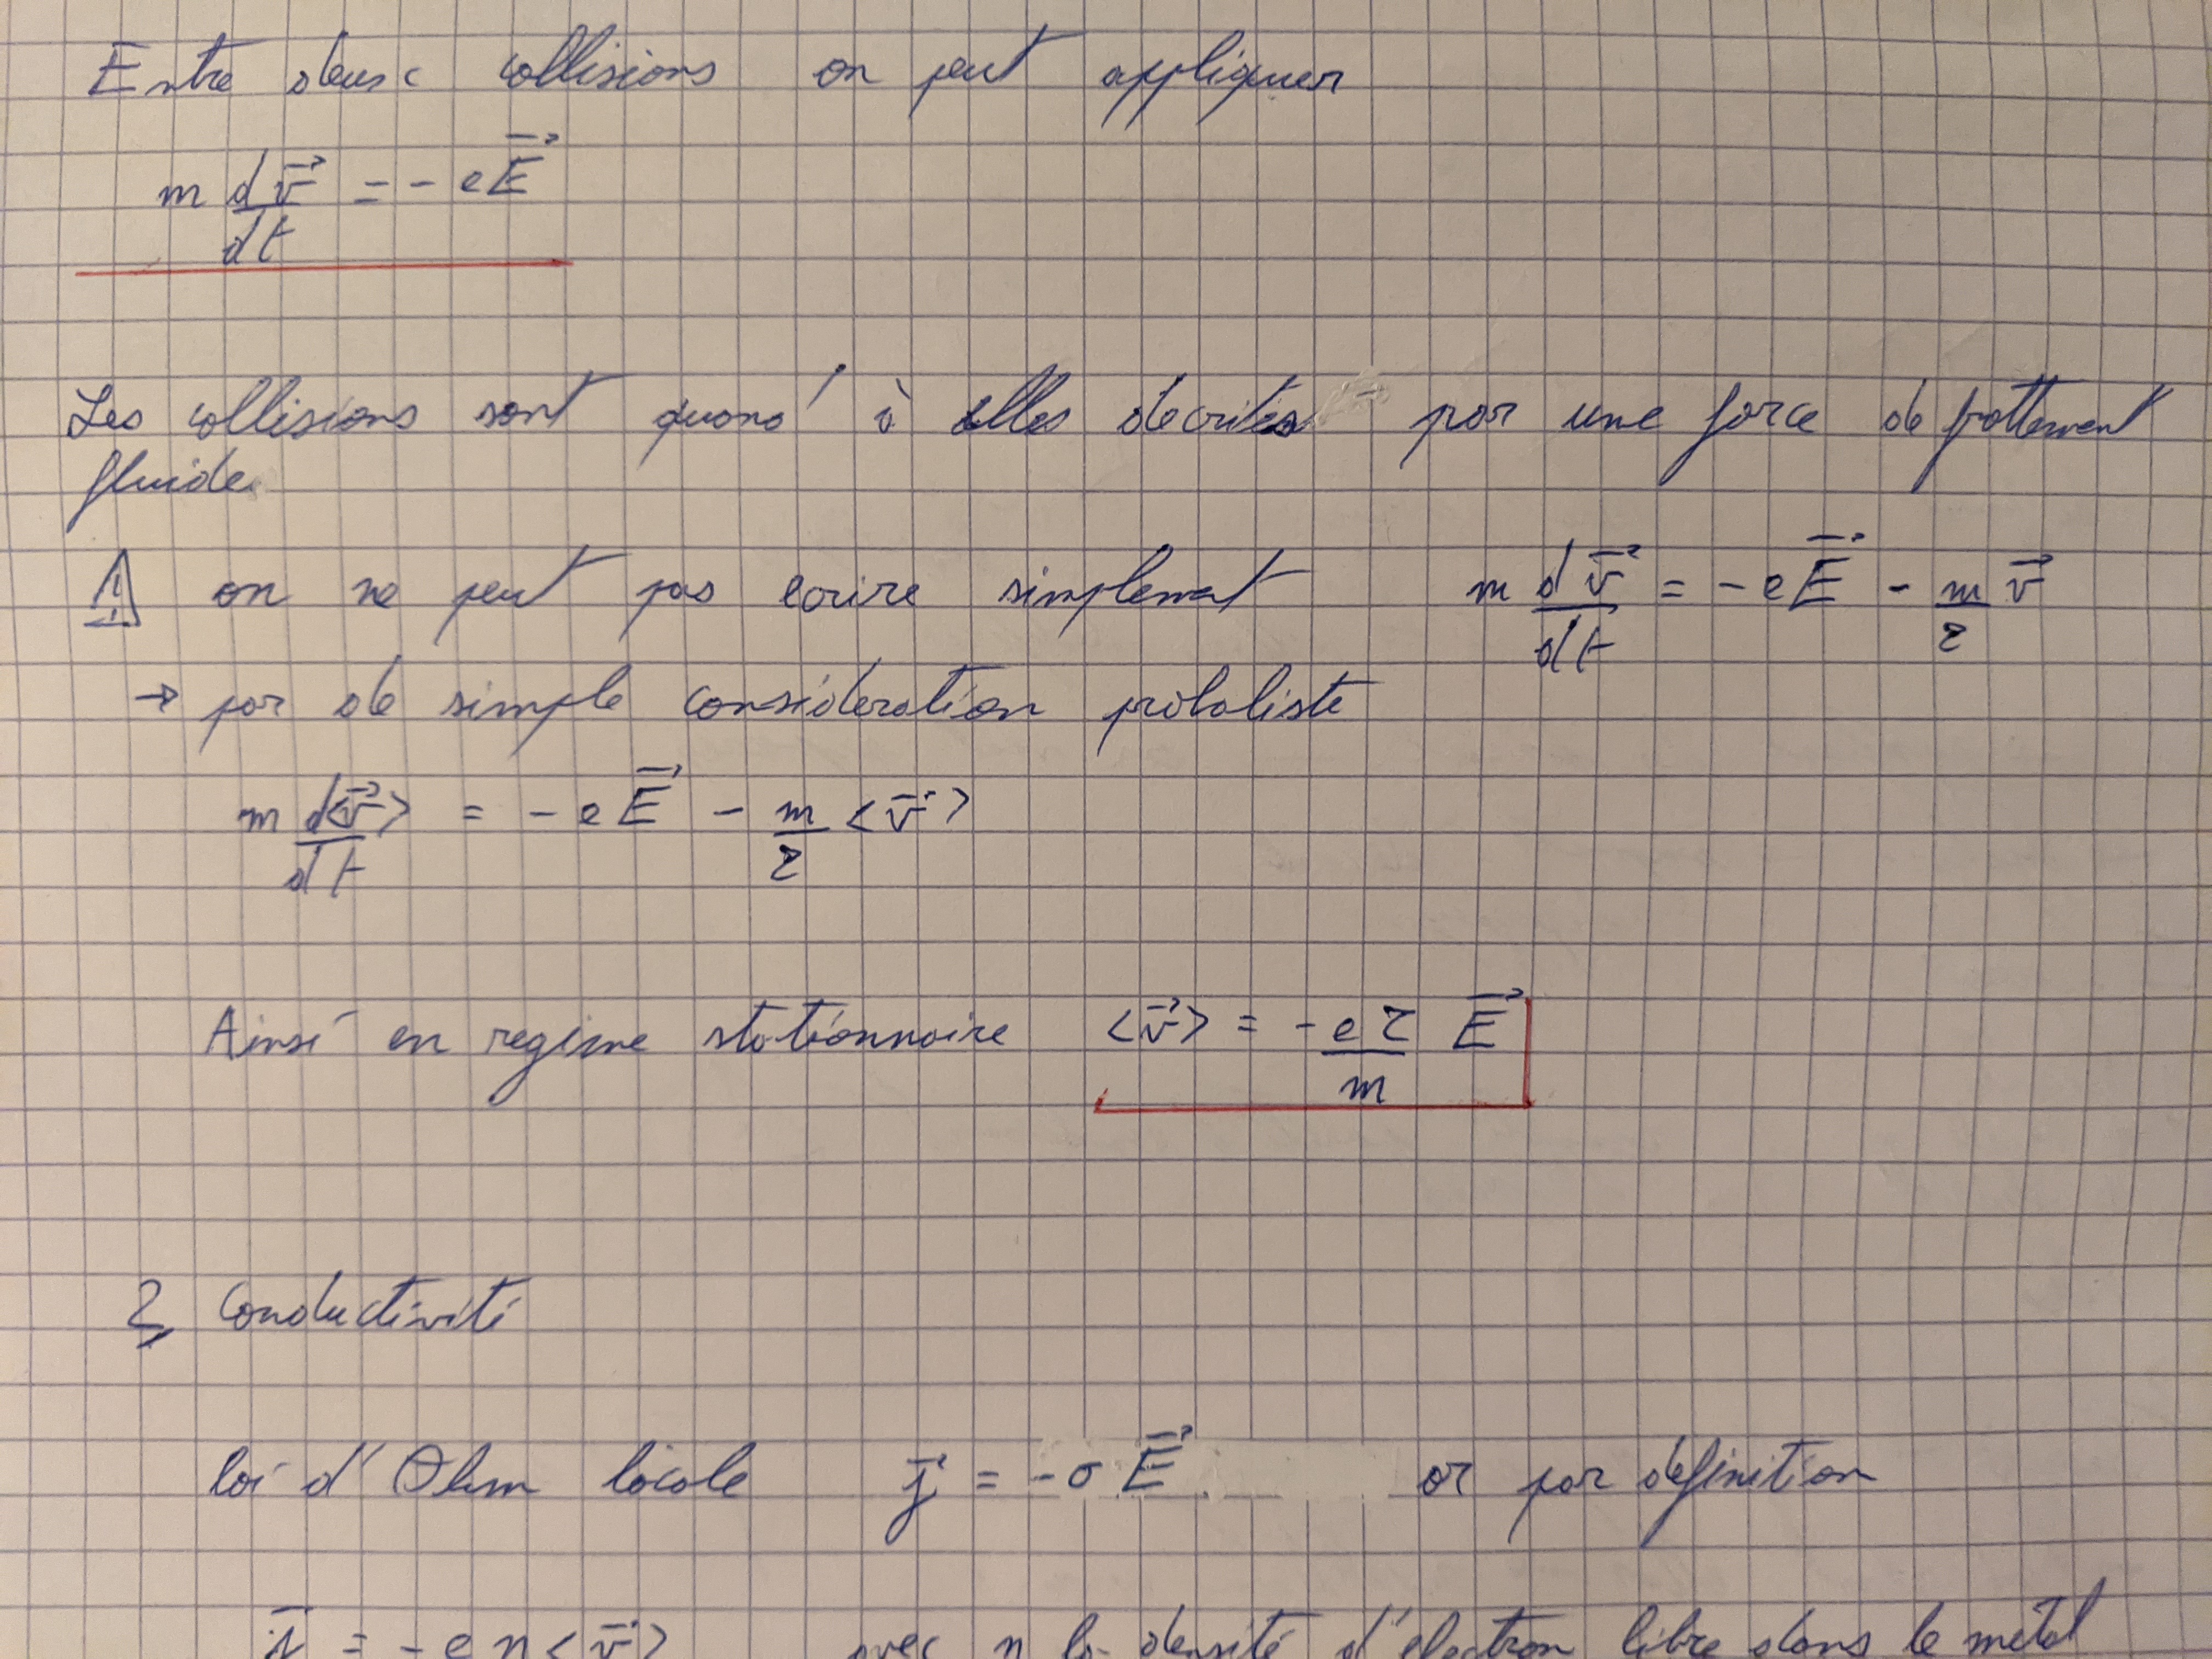 Entre deux collisions on peut appliquer
m dv⃗/dt = - eE⃗
Les collisions sont quand à elles décrites par une force de frottement
fluide
⚠ on ne peut pas écrire simplement m dv⃗/dt = - eE⃗ - m/τ v⃗
→ par de simple considération probabiliste
m d<v⃗>/dt = - eE⃗ - m/τ <v⃗>
Ainsi en régime stationnaire <v⃗> = - eτ/m E⃗
2, Conductivité
loi d'Ohm locale j⃗ = - σ E⃗ or par définition
j⃗ = - e n <v⃗> avec n la densité d'électron libre dans le métal